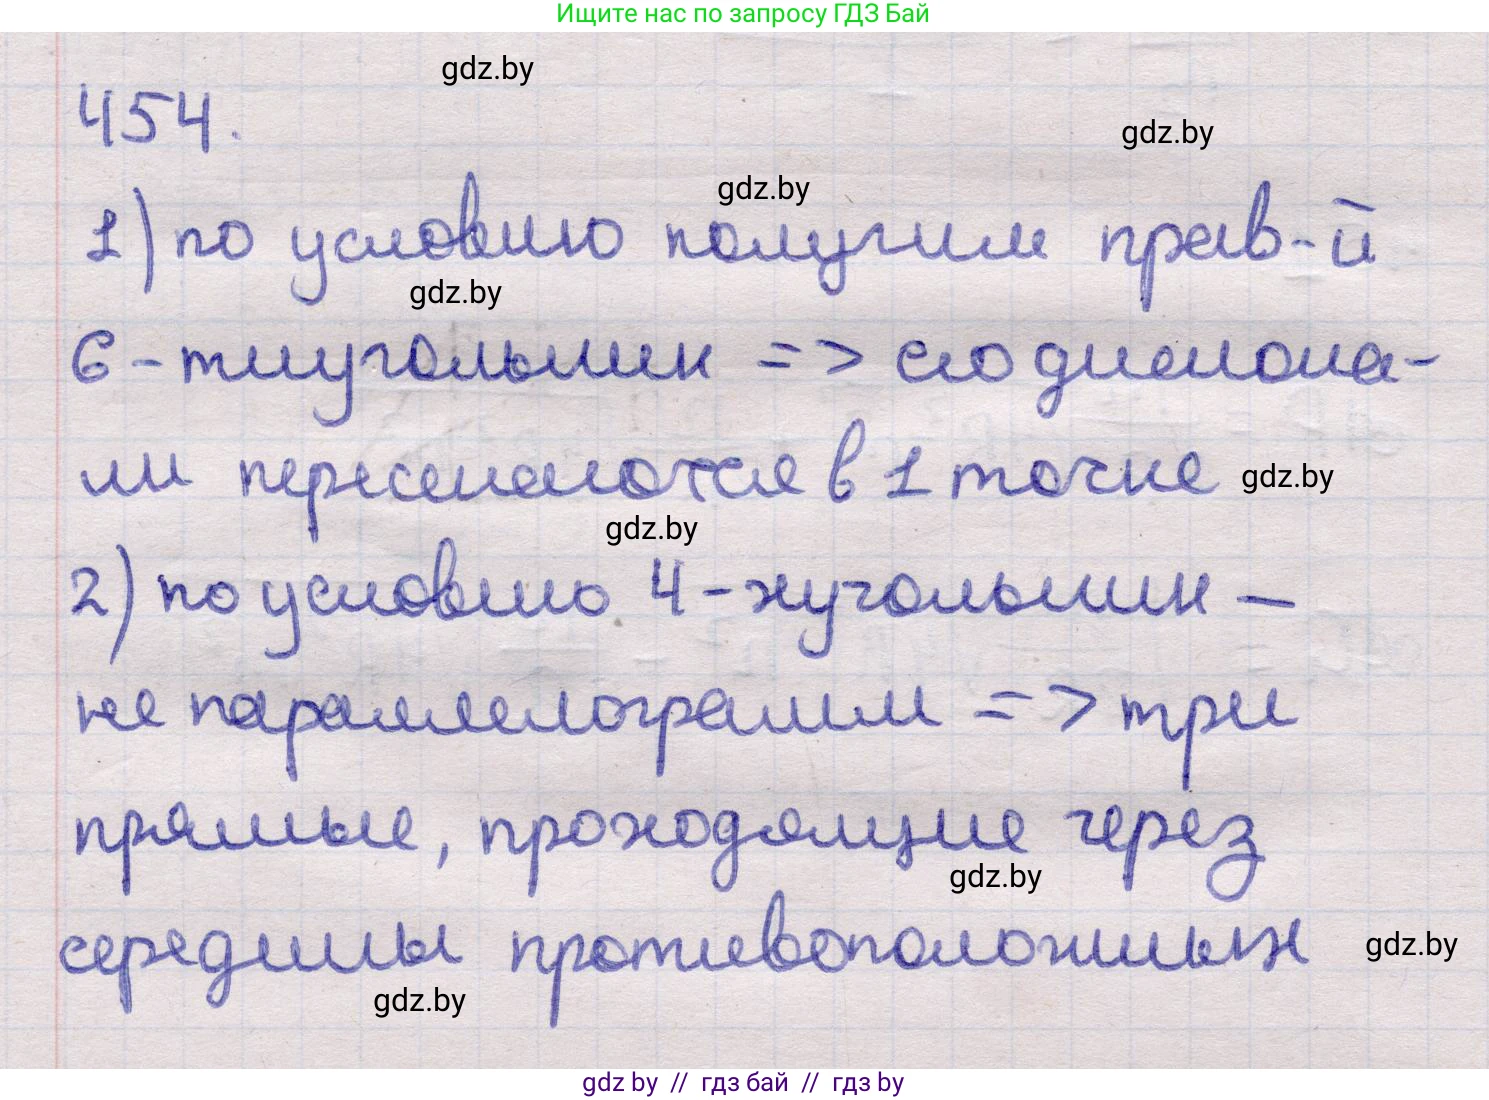 Ищите нас по запросу ГДЗ Бай
gdz.by
454.
gdz.by
gdz.by
1) по условию получим прав-й
gdz.by
6-тиугольник => его диагона-
ли пересекаются в 1 точке
gdz.by
gdz.by
2) по условию 4-хугольник —
не параллелограмм => три
прямые, проходящие через
gdz.by
середины противоположных
gdz.by
gdz.by
gdz by // гдз бай // гдз by